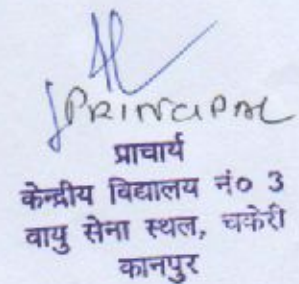 PRINCIPAL
प्राचार्य
केन्द्रीय विद्यालय नं० 3
वायु सेना स्थल, चकेरी
कानपुर